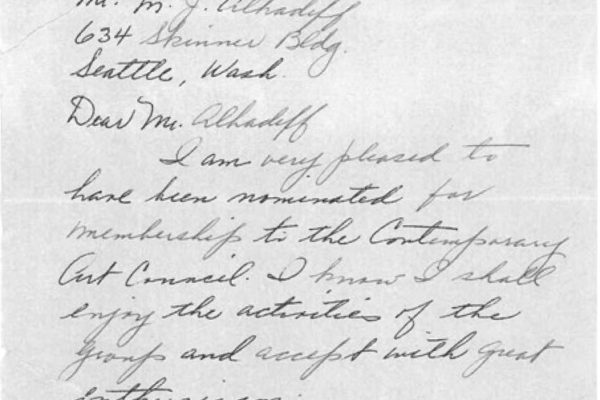 Mr. M. J. Alhadeff
634 Skinner Bldg.
Seattle, Wash.
Dear Mr. Alhadeff
I am very pleased to
have been nominated for
membership to the Contemporary
Art Council. I know I shall
enjoy the activities of the
group and accept with great
enthusiasm.